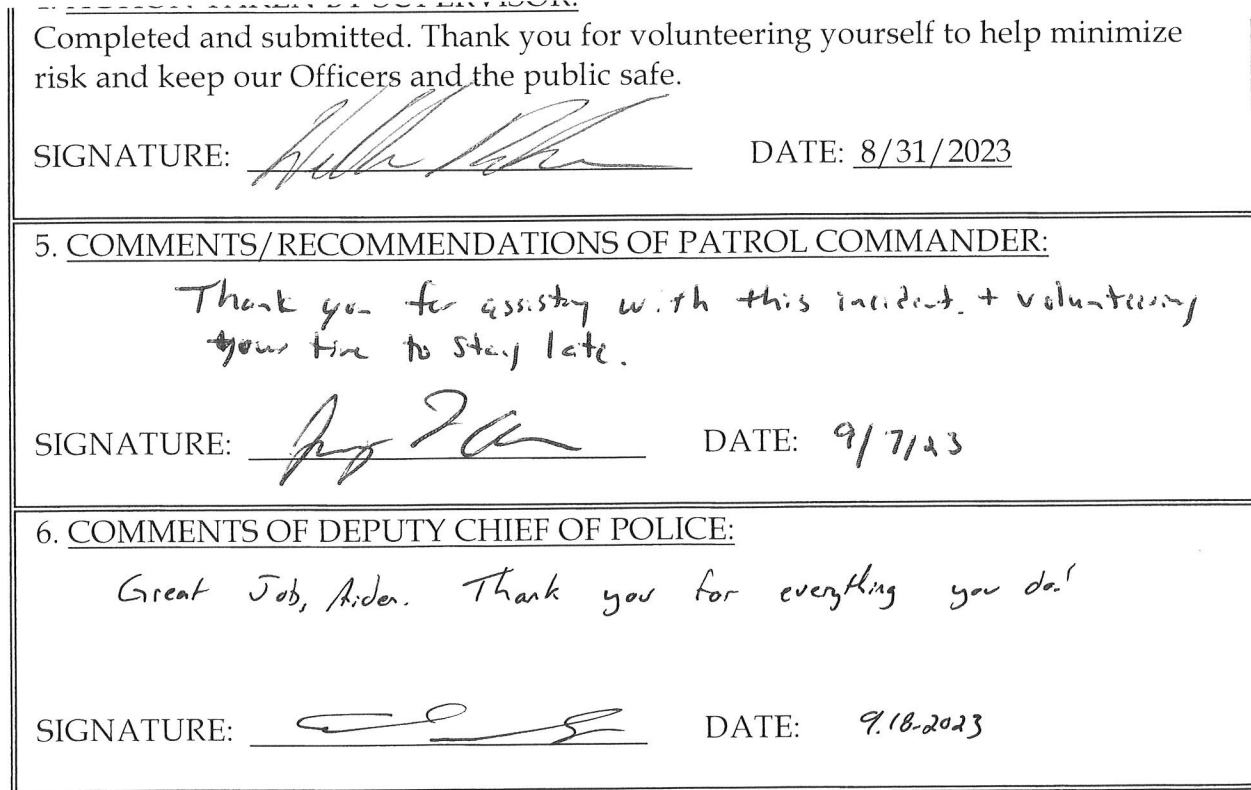 ACTION TAKEN BY SUPERVISOR:
Completed and submitted. Thank you for volunteering yourself to help minimize
risk and keep our Officers and the public safe.
SIGNATURE: DATE: 8/31/2023
5. COMMENTS/RECOMMENDATIONS OF PATROL COMMANDER:
Thank you for assisting with this incident. + volunteering
your time to stay late.
SIGNATURE: DATE: 9/7/23
6. COMMENTS OF DEPUTY CHIEF OF POLICE:
Great Job, Aiden. Thank you for everything you do!
SIGNATURE: DATE: 9.18-2023